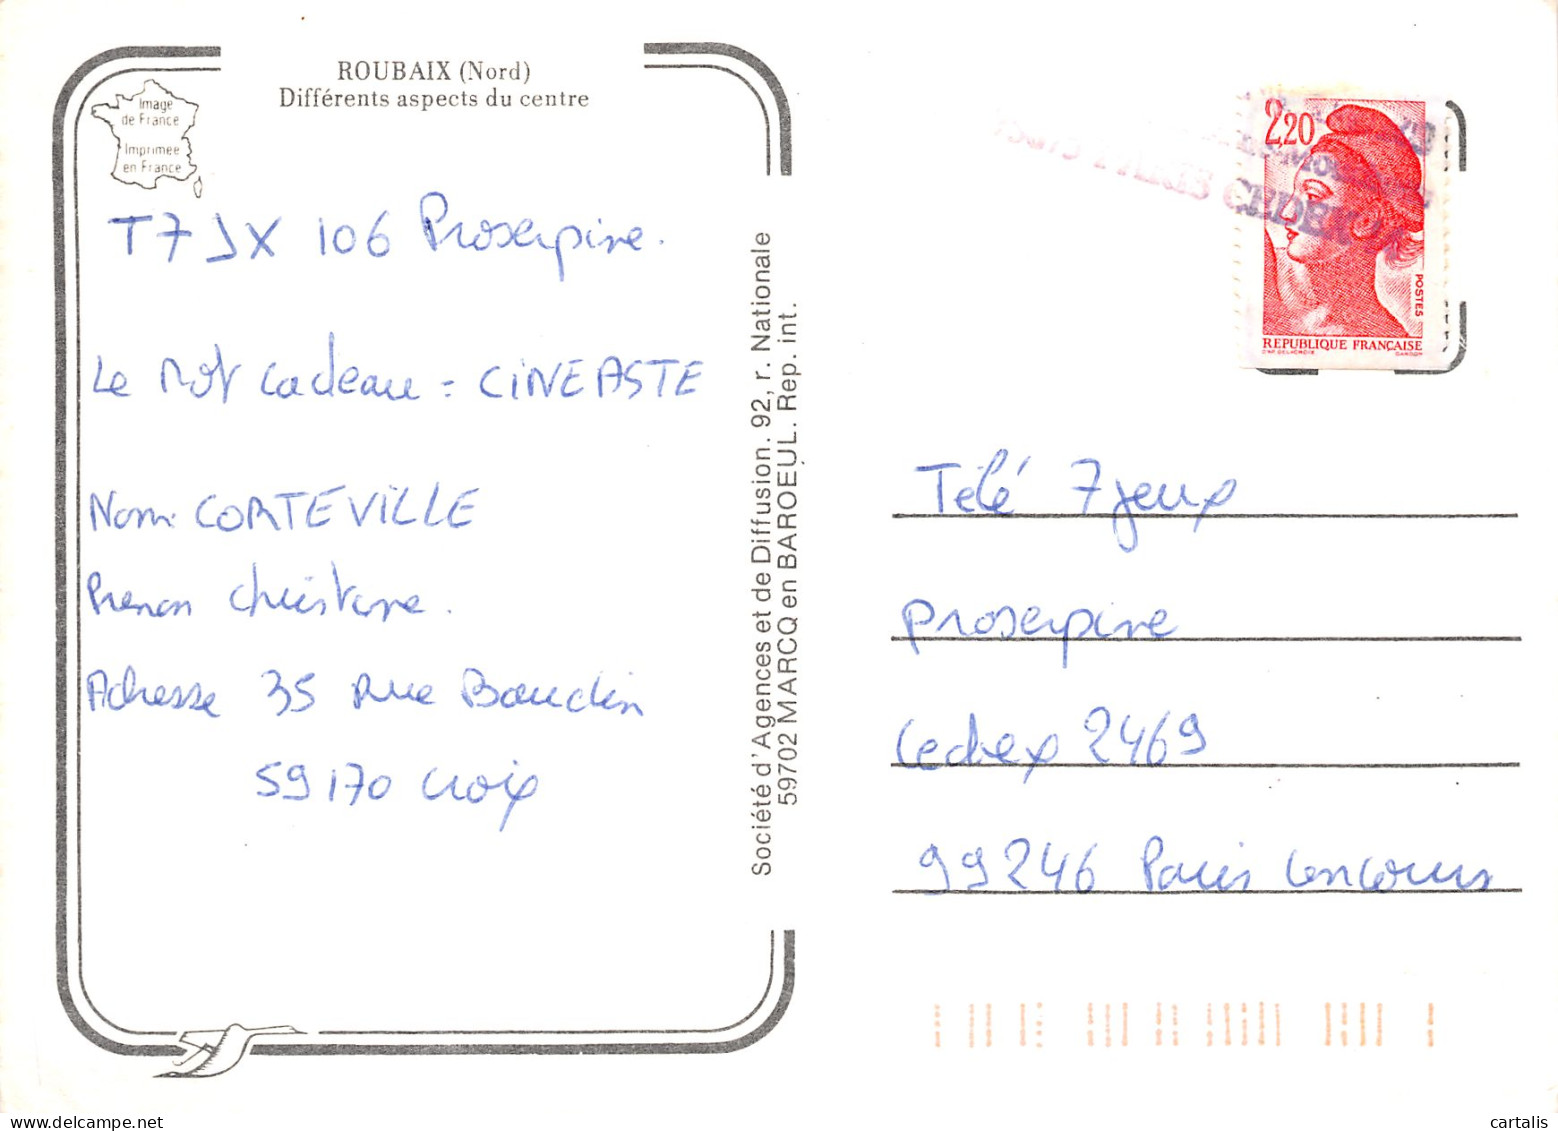 ROUBAIX (Nord)
Différents aspects du centre
Image
de France
Imprimée
en France
T7JX 106 Proserpine.
Le Mot Cadeau = CINEASTE
Nom CORTEVILLE
Prenom Christiane.
Adresse 35 Rue Baudin
59170 Croix
Société d'Agences et de Diffusion. 92, r. Nationale
59702 MARCQ en BAROEUL. Rep. int.
PARIS CEDEX
2,20
POSTES
REPUBLIQUE FRANÇAISE
Télé 7 jeux
Proserpine
Cedex 2469
99246 Paris Concours
cartalis